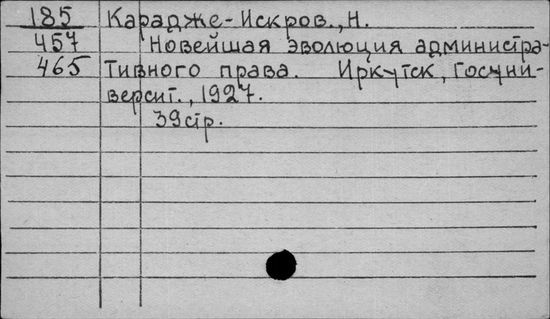 185 Карадже-Искров., Н.
457 Новейшая эволюция администра-
465 тивного права. Иркутск, Госуни-
версит., 1927.
39 стр.